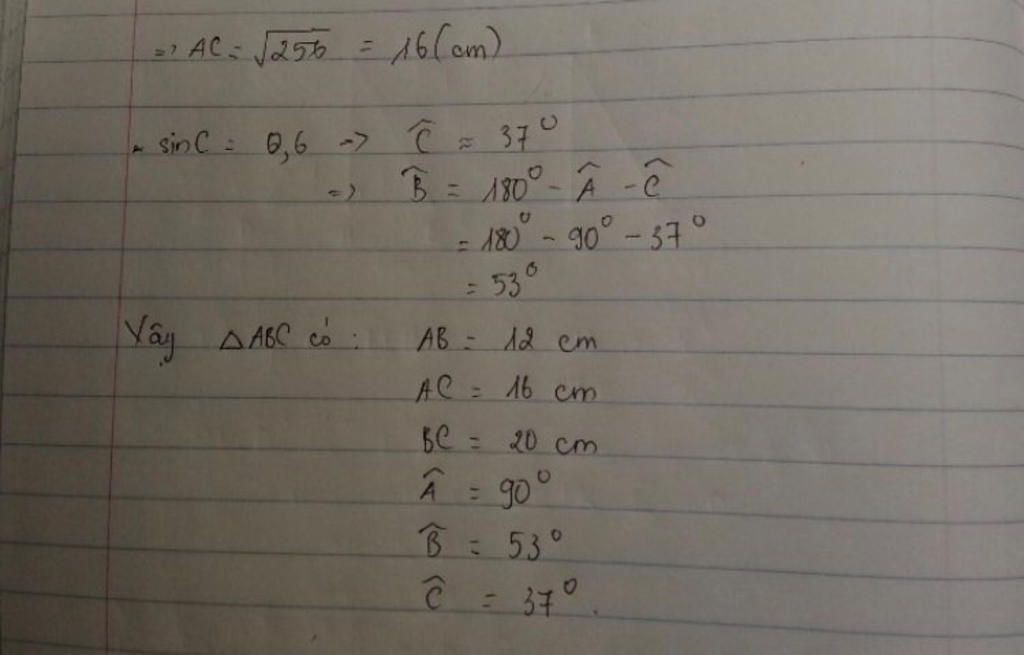 => AC = √256 = 16 (cm)
- sinC = 0,6 => Ĉ ≈ 37°
=> B̂ = 180° - Â - Ĉ
= 180° - 90° - 37°
= 53°
Vậy △ABC có: AB = 12 cm
AC = 16 cm
BC = 20 cm
Â = 90°
B̂ = 53°
Ĉ = 37°.